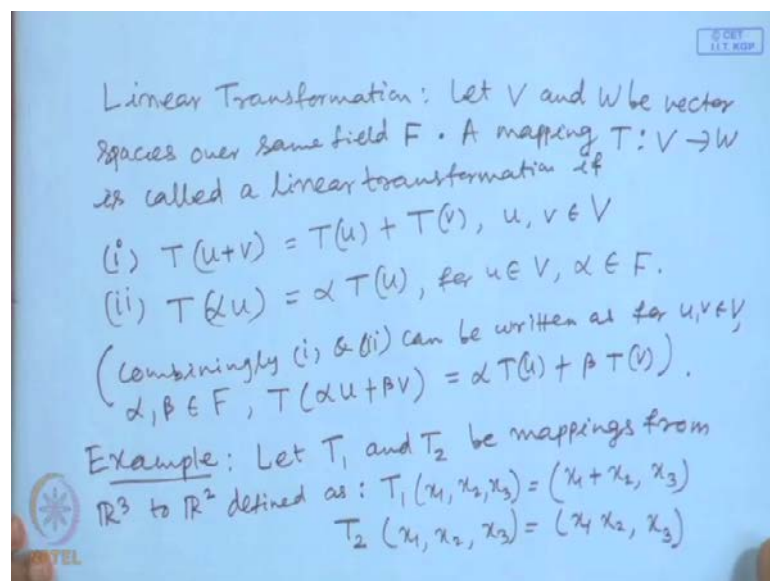 © CET
I.I.T. KGP
Linear Transformation: Let V and W be vector
spaces over same field F. A mapping T: V → W
is called a linear transformation if
(i) T(u+v) = T(u) + T(v), u, v ∈ V
(ii) T(αu) = α T(u), for u ∈ V, α ∈ F.
(Combiningly (i) & (ii) can be written as for u, v ∈ V,
α, β ∈ F, T(αu+βv) = α T(u) + β T(v)).
Example: Let T₁ and T₂ be mappings from
ℝ³ to ℝ² defined as: T₁(x₁, x₂, x₃) = (x₁ + x₂, x₃)
T₂(x₁, x₂, x₃) = (x₁ x₂, x₃)
NPTEL